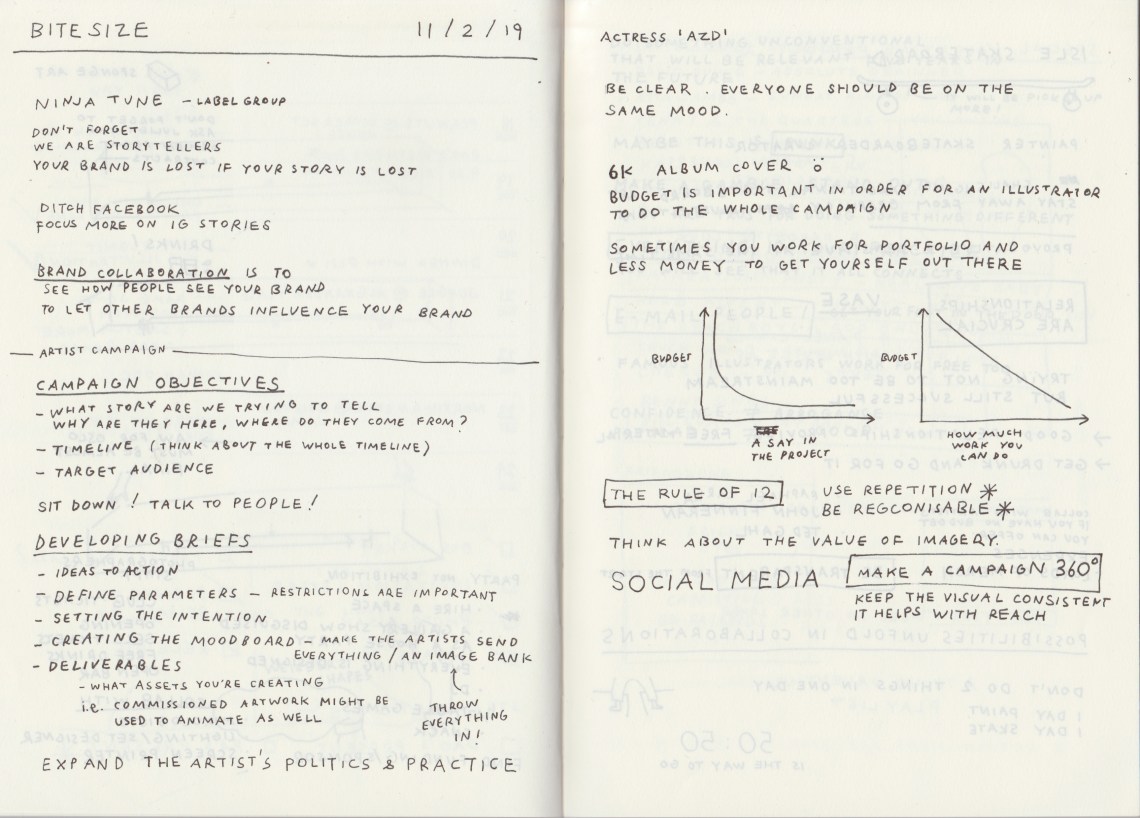 BITESIZE 11/2/19
NINJA TUNE - LABEL GROUP
DON'T FORGET
WE ARE STORYTELLERS
YOUR BRAND IS LOST IF YOUR STORY IS LOST
DITCH FACEBOOK
FOCUS MORE ON IG STORIES
BRAND COLLABORATION IS TO
SEE HOW PEOPLE SEE YOUR BRAND
TO LET OTHER BRANDS INFLUENCE YOUR BRAND
ARTIST CAMPAIGN
CAMPAIGN OBJECTIVES
- WHAT STORY ARE WE TRYING TO TELL
WHY ARE THEY HERE, WHERE DO THEY COME FROM?
- TIMELINE (THINK ABOUT THE WHOLE TIMELINE)
- TARGET AUDIENCE
SIT DOWN! TALK TO PEOPLE!
DEVELOPING BRIEFS
- IDEAS TO ACTION
- DEFINE PARAMETERS - RESTRICTIONS ARE IMPORTANT
- SETTING THE INTENTION
- CREATING THE MOODBOARD - MAKE THE ARTISTS SEND
EVERYTHING / AN IMAGE BANK
- DELIVERABLES
- WHAT ASSETS YOU'RE CREATING
i.e. COMMISSIONED ARTWORK MIGHT BE
USED TO ANIMATE AS WELL
THROW
EVERYTHING
IN!
EXPAND THE ARTIST'S POLITICS & PRACTICE
ACTRESS 'AZD'
BE CLEAR. EVERYONE SHOULD BE ON THE
SAME MOOD.
6K ALBUM COVER
BUDGET IS IMPORTANT IN ORDER FOR AN ILLUSTRATOR
TO DO THE WHOLE CAMPAIGN
SOMETIMES YOU WORK FOR PORTFOLIO AND
LESS MONEY TO GET YOURSELF OUT THERE
BUDGET
A SAY IN
THE PROJECT
BUDGET
HOW MUCH
WORK YOU
CAN DO
THE RULE OF 12 USE REPETITION *
BE REGCONISABLE *
THINK ABOUT THE VALUE OF IMAGERY.
SOCIAL MEDIA MAKE A CAMPAIGN 360°
KEEP THE VISUAL CONSISTENT
IT HELPS WITH REACH